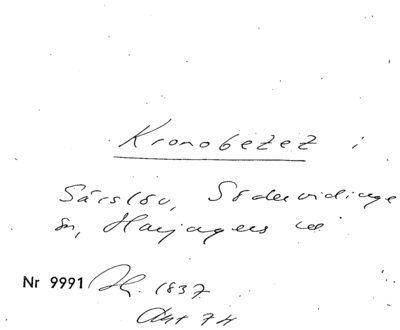 Kronobetet i
Särslöv, Södervidinge
sn, Harjagers
Nr 9991 1837
Akt 74